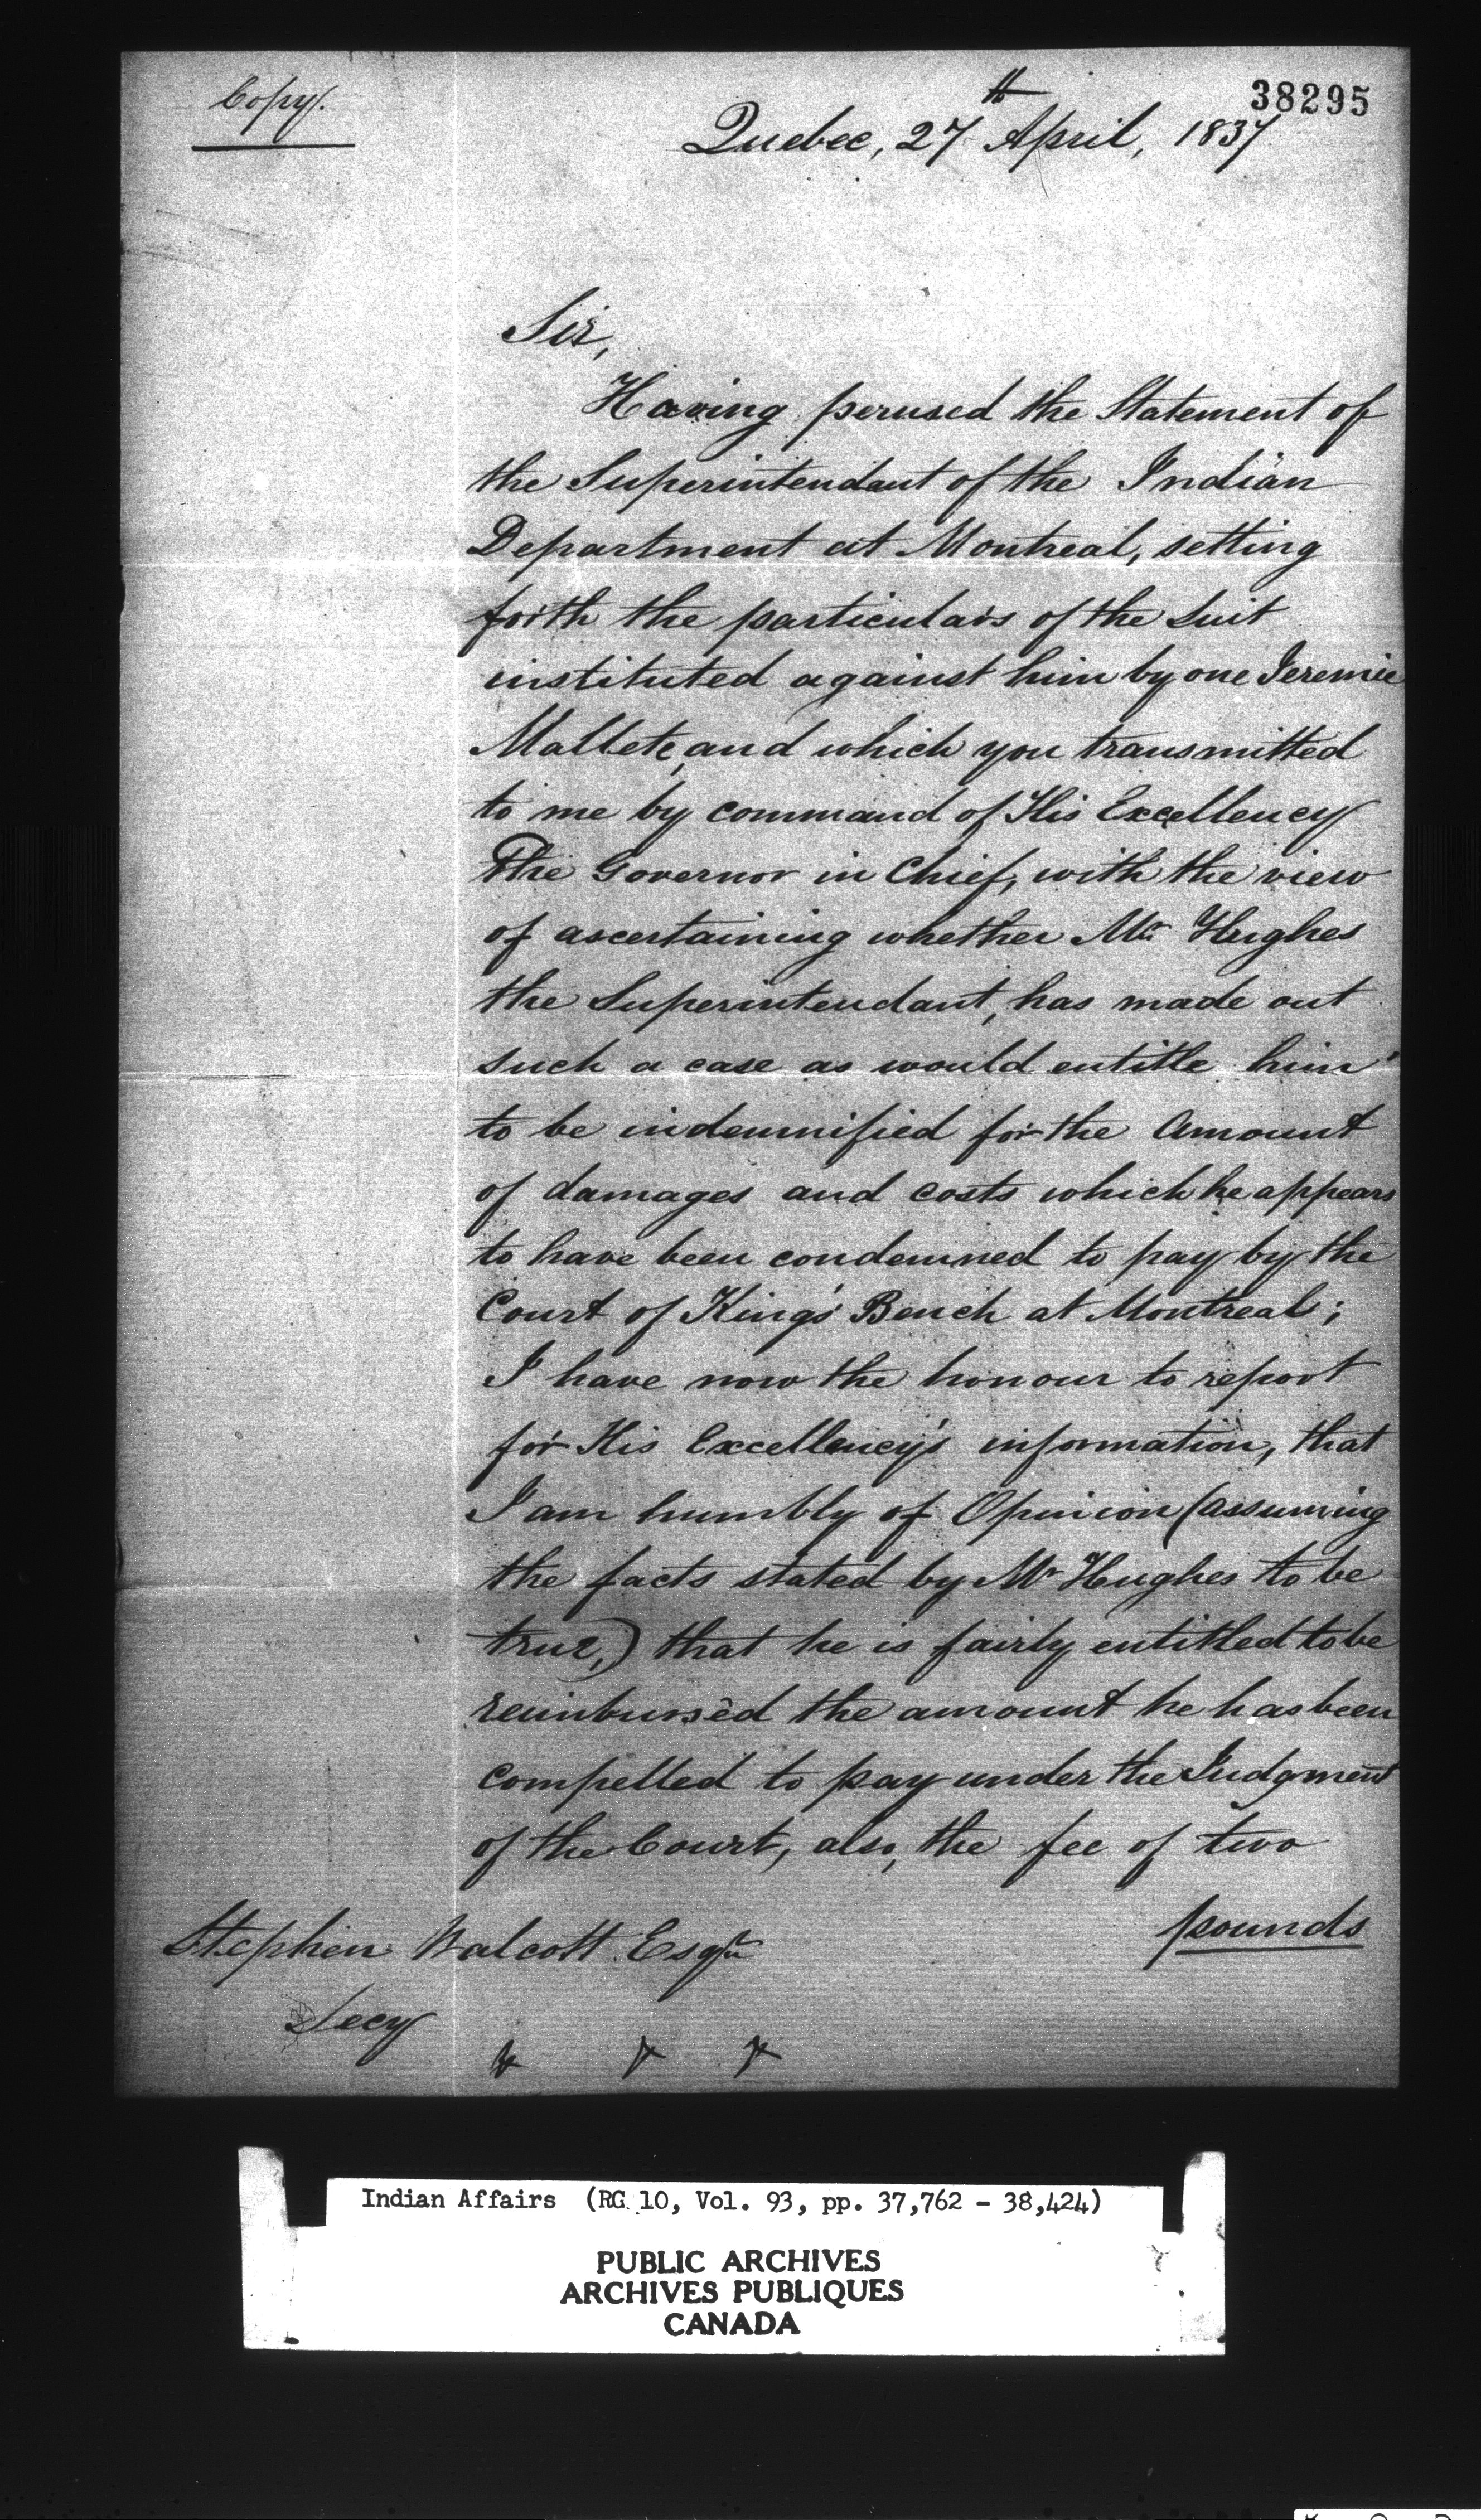 Copy.
38295
Quebec, 27th April, 1837
Sir,
Having perused the Statement of
the Superintendant of the Indian
Department at Montreal, setting
forth the particulars of the Suit
instituted against him by one Jeremie
Mallete, and which you transmitted
to me by command of His Excellency
The Governor in Chief, with the view
of ascertaining whether Mr. Hughes
the Superintendant, has made out
such a case as would entitle him
to be indemnified for the Amount
of damages and costs which he appears
to have been condemned to pay by the
Court of King's Bench at Montreal;
I have now the honour to report
for His Excellency's information, that
I am humbly of Opinion (assuming
the facts stated by Mr Hughes to be
true,) that he is fairly entitled to be
reimbursed the amount he has been
compelled to pay under the Judgment
of the Court, also, the fee of two
pounds
Stephen Walcott Esqre
Secy
Indian Affairs (RG 10, Vol. 93, pp. 37,762 - 38,424)
PUBLIC ARCHIVES
ARCHIVES PUBLIQUES
CANADA